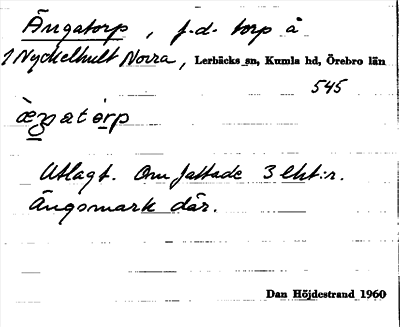 Ängatorp, f.d. torp å
1 Nyckelhult Norra, Lerbäcks sn, Kumla hd, Örebro län
545
Utlagt. Omfattade 3 lht:r.
Ängsmark där.
Dan Höjdestrand 1960